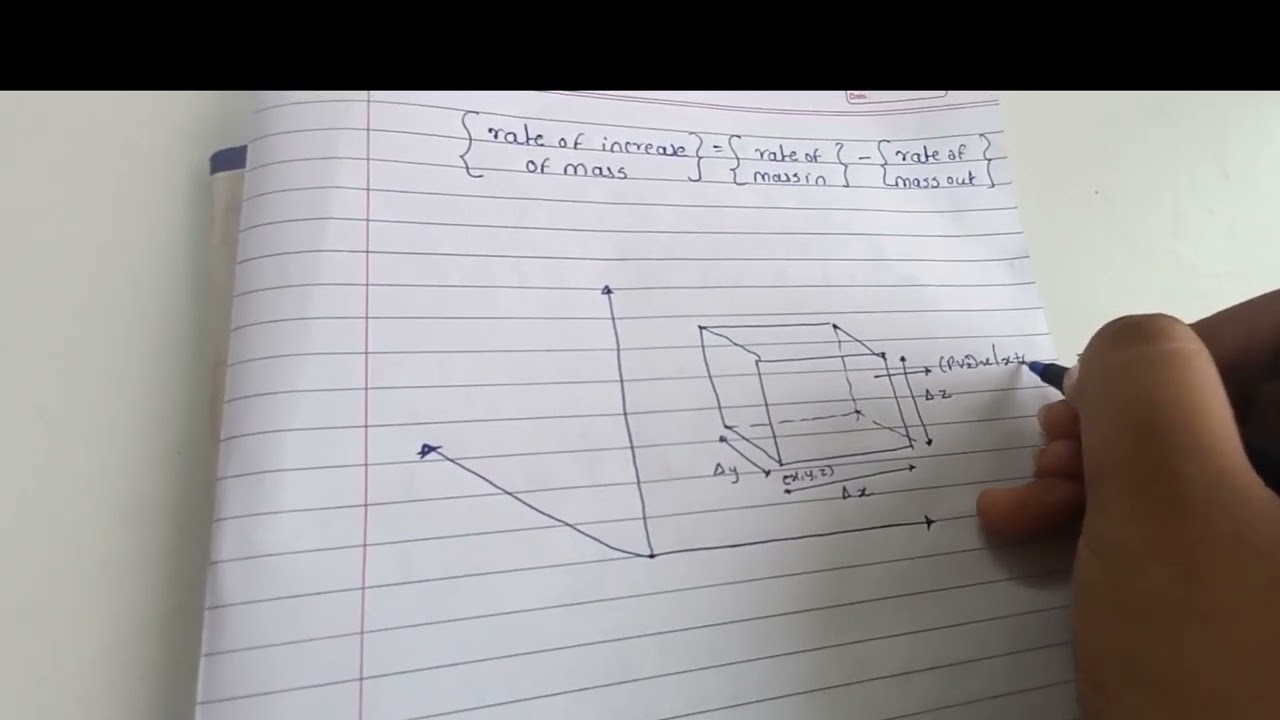 Date
{rate of increase of mass} = {rate of mass in} - {rate of mass out}
Δz
Δy
(x,y,z)
Δx